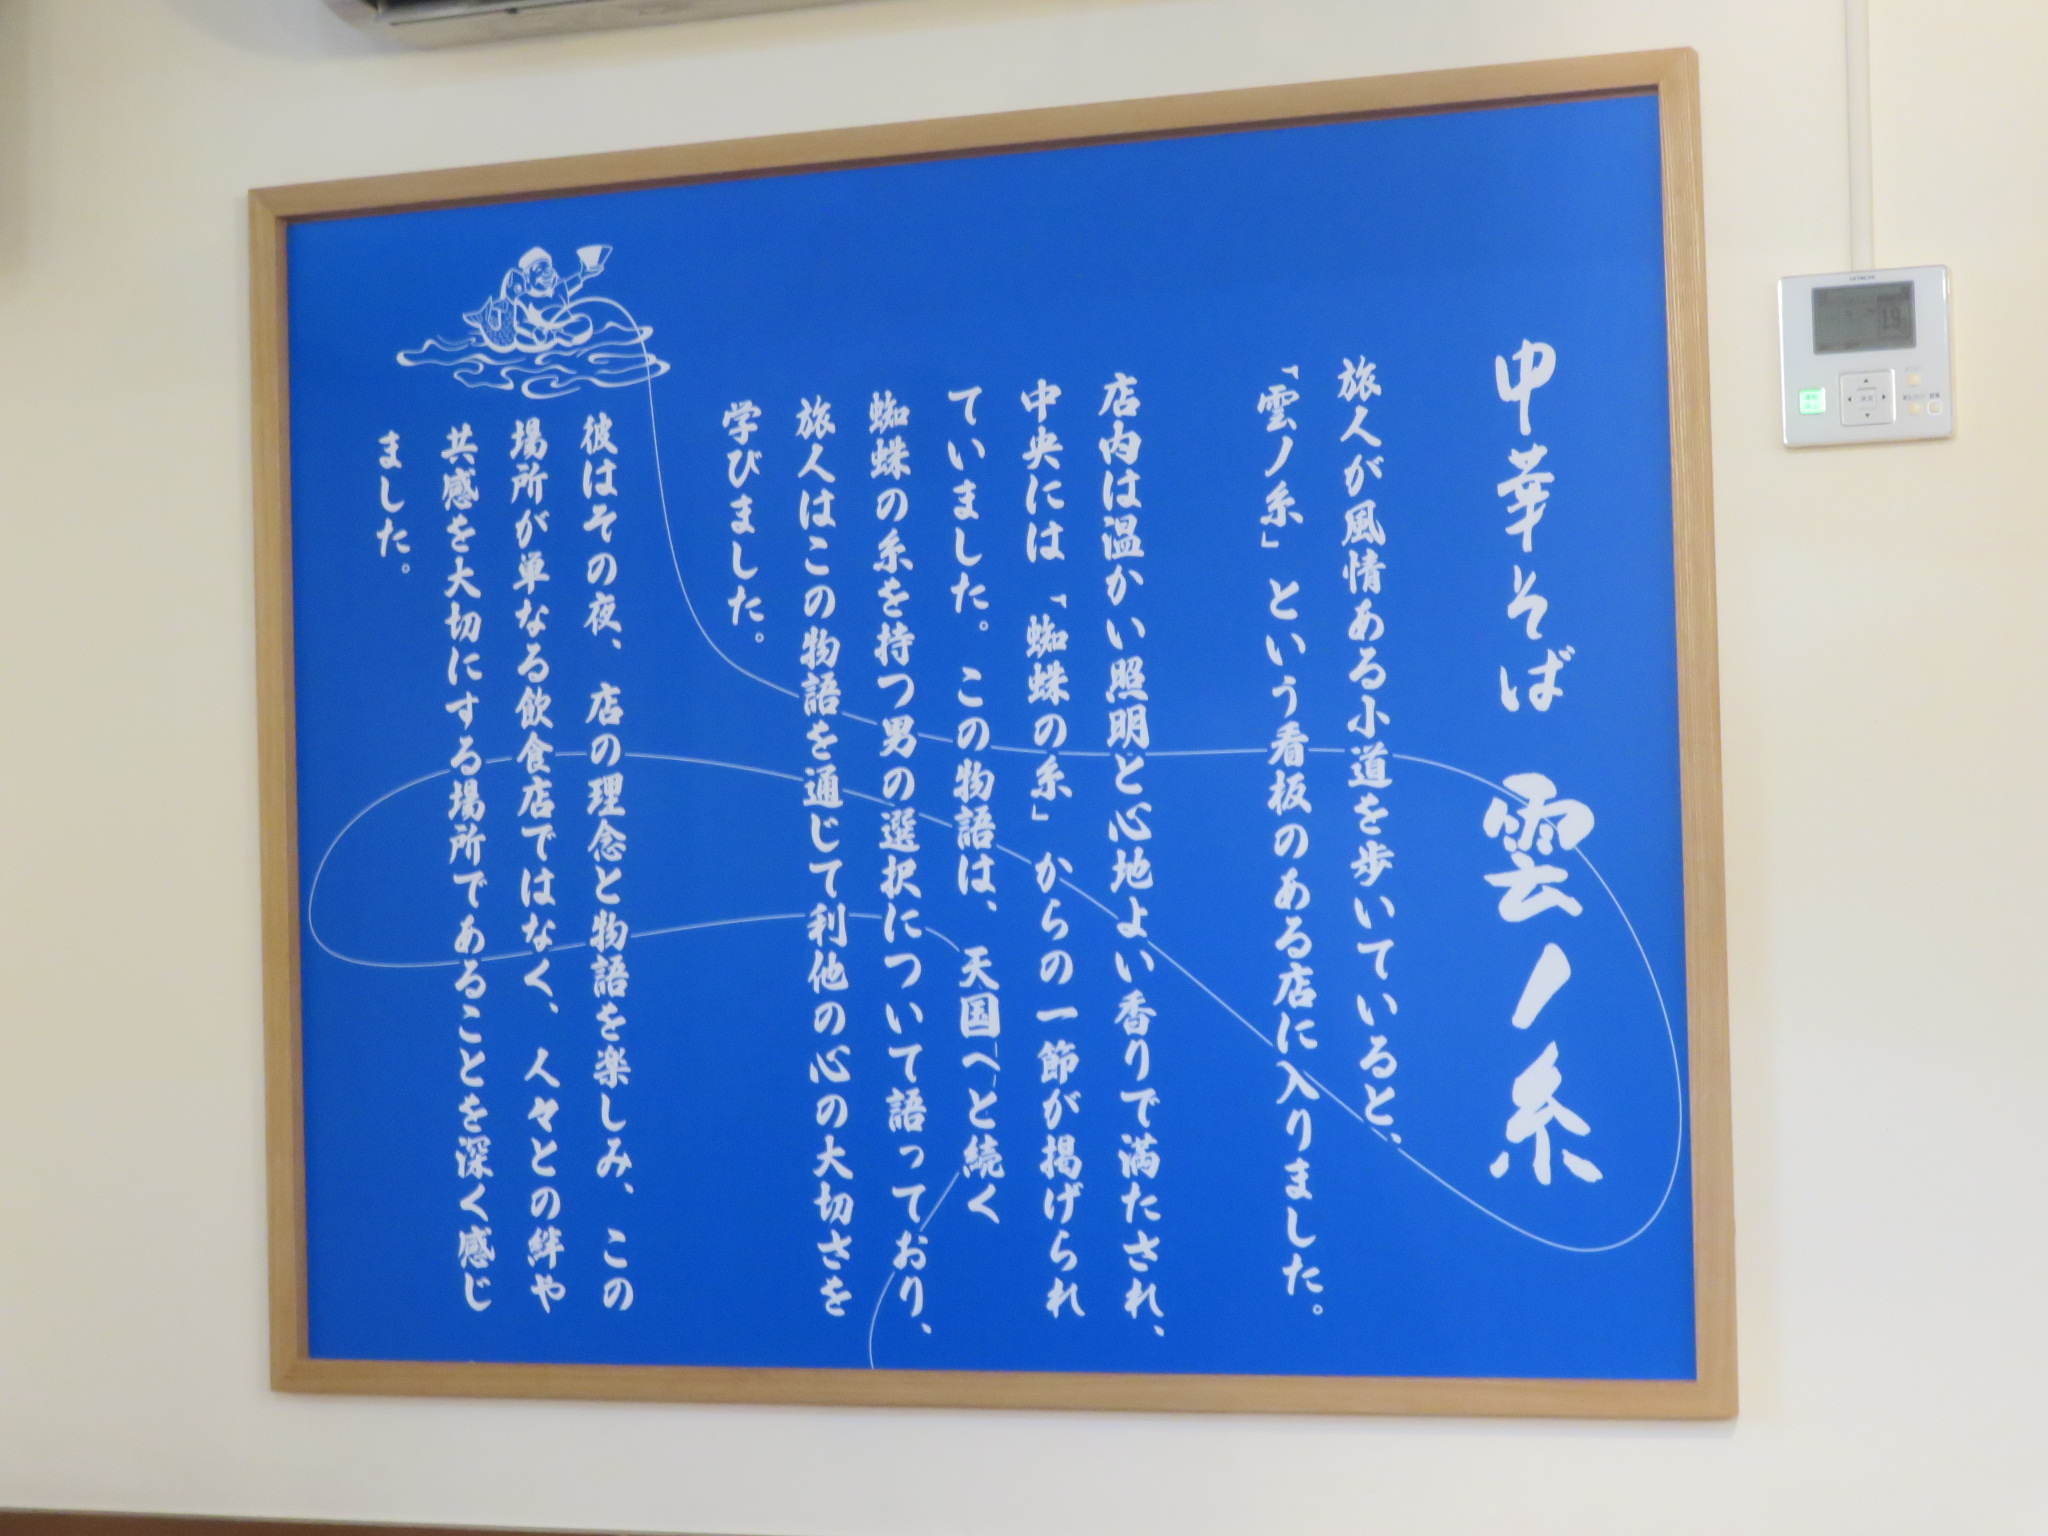 中華そば 雲ノ糸
旅人が風情ある小道を歩いていると、
「雲ノ糸」という看板のある店に入りました。
店内は温かい照明と心地よい香りで満たされ、
中央には「蜘蛛の糸」からの一節が掲げられ
ていました。この物語は、天国へと続く
蜘蛛の糸を持つ男の選択について語っており、
旅人はこの物語を通じて利他の心の大切さを
学びました。
彼はその夜、店の理念と物語を楽しみ、この
場所が単なる飲食店ではなく、人々との絆や
共感を大切にする場所であることを深く感じ
ました。
HITACHI
19